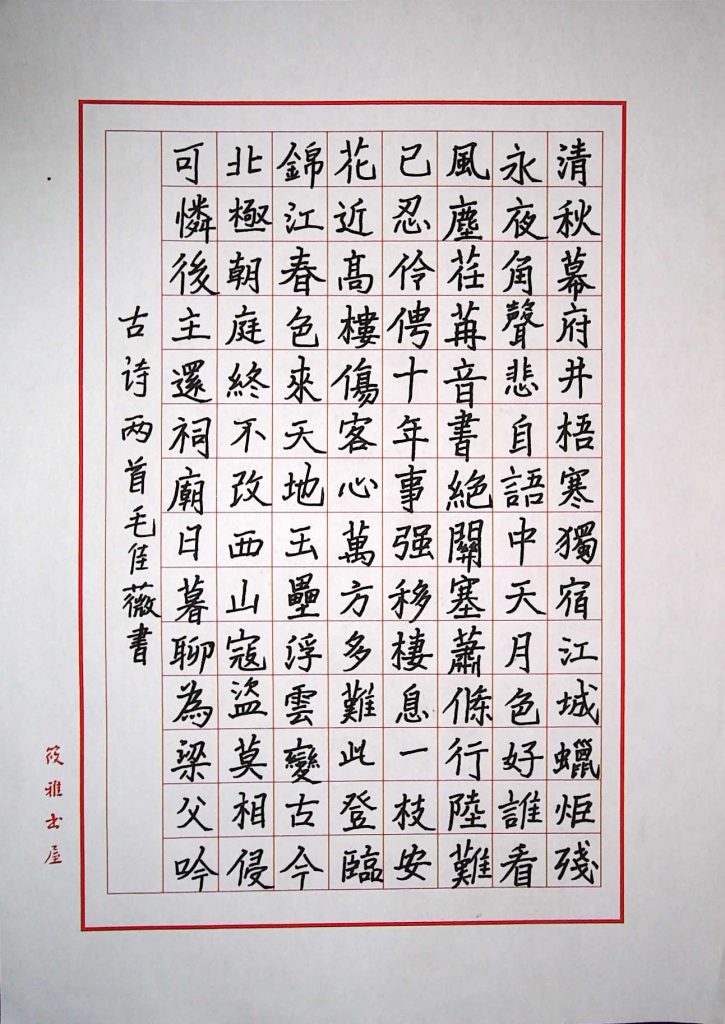 清秋幕府井梧寒獨宿江城蠟炬殘
永夜角聲悲自語中天月色好誰看
風塵荏苒音書絕關塞蕭條行陸難
已忍伶俜十年事强移棲息一枝安
花近高樓傷客心萬方多難此登臨
錦江春色來天地玉壘浮雲變古今
北極朝庭終不改西山寇盜莫相侵
可憐後主還祠廟日暮聊為梁父吟
古诗两首毛佳薇書
筱雅书屋